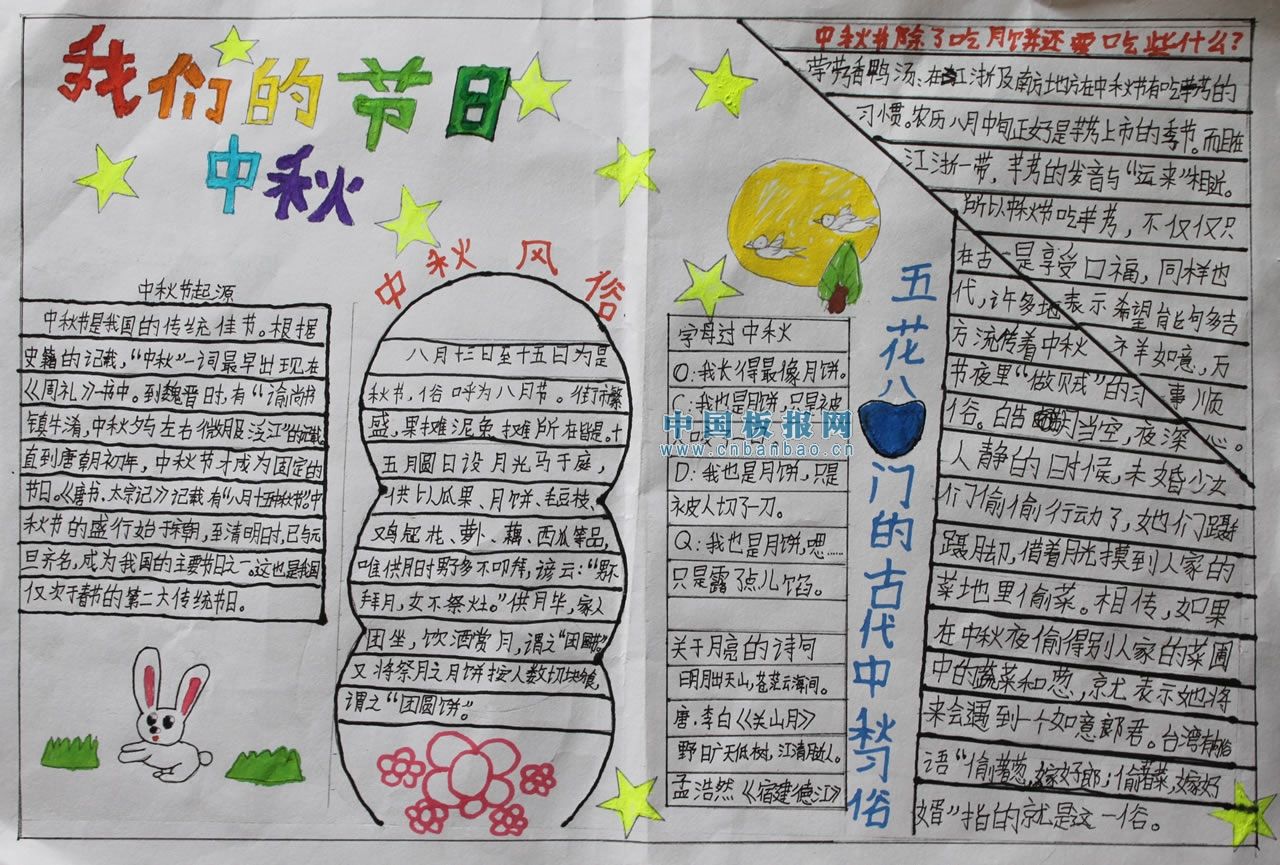 我们的节日
中秋
中秋节起源
中秋节是我国的传统佳节。根据
史籍的记载，“中秋”一词最早出现在
《周礼》一书中。到魏晋时，有“谕尚书
镇牛渚，中秋夕与左右微服泛江”的记载。
直到唐朝初年，中秋节才成为固定的
节日。《唐书·太宗记》记载有“八月十五中秋节”。中
秋节的盛行始于宋朝，至清明时，已与元
旦齐名，成为我国的主要节日之一。这也是我国
仅次于春节的第二大传统节日。
中秋风俗
八月十三日至十五日为是
秋节，俗呼为八月节。街市繁
盛，果摊泥兔摊所在皆是。十
五月圆日设月光马于庭，
供以瓜果、月饼、毛豆枝、
鸡冠花、萝卜、藕、西瓜等品，
唯供月时男多不叩拜，谚云：“男不
拜月，女不祭灶。”供月毕，家人
团坐，饮酒赏月，谓之“团圆”。
又将祭月之月饼按人数切块分食，
谓之“团圆饼”。
字母过中秋
O：我长得最像月饼。
C：我也是月饼，只是被
咬了一口。
D：我也是月饼，只是
被人切了一刀。
Q：我也是月饼，嗯……
只是露了点儿馅。
关于月亮的诗句
明月出天山，苍茫云海间。
唐·李白《关山月》
野旷天低树，江清月近人。
孟浩然《宿建德江》
五花八门的古代中秋习俗
中秋节除了吃月饼还要吃些什么？
芋艿香鸭汤：在江浙及南方地方在中秋节有吃芋艿的
习惯。农历八月中旬正好是芋艿上市的季节。而且在
江浙一带，芋艿的发音与“运来”相近。
所以中秋节吃芋艿，不仅仅只
是享受口福，同样也
表示希望能够多吉
祥如意，万
事顺
心。
在古
代，许多地
方流传着中秋
节夜里“做贼”的习
俗。皓月当空，夜深
人静的时候，未婚少女
们偷偷行动了，她们蹑手
蹑脚，借着月光摸到人家的
菜地里偷菜。相传，如果
在中秋夜偷得别人家的菜圃
中的蔬菜和葱，就表示她将
来会遇到一个如意郎君。台湾有俗
语“偷着葱，嫁好郎；偷着菜，嫁好
婿”指的就是这一俗。
中国板报网
www.cnbanbao.cn